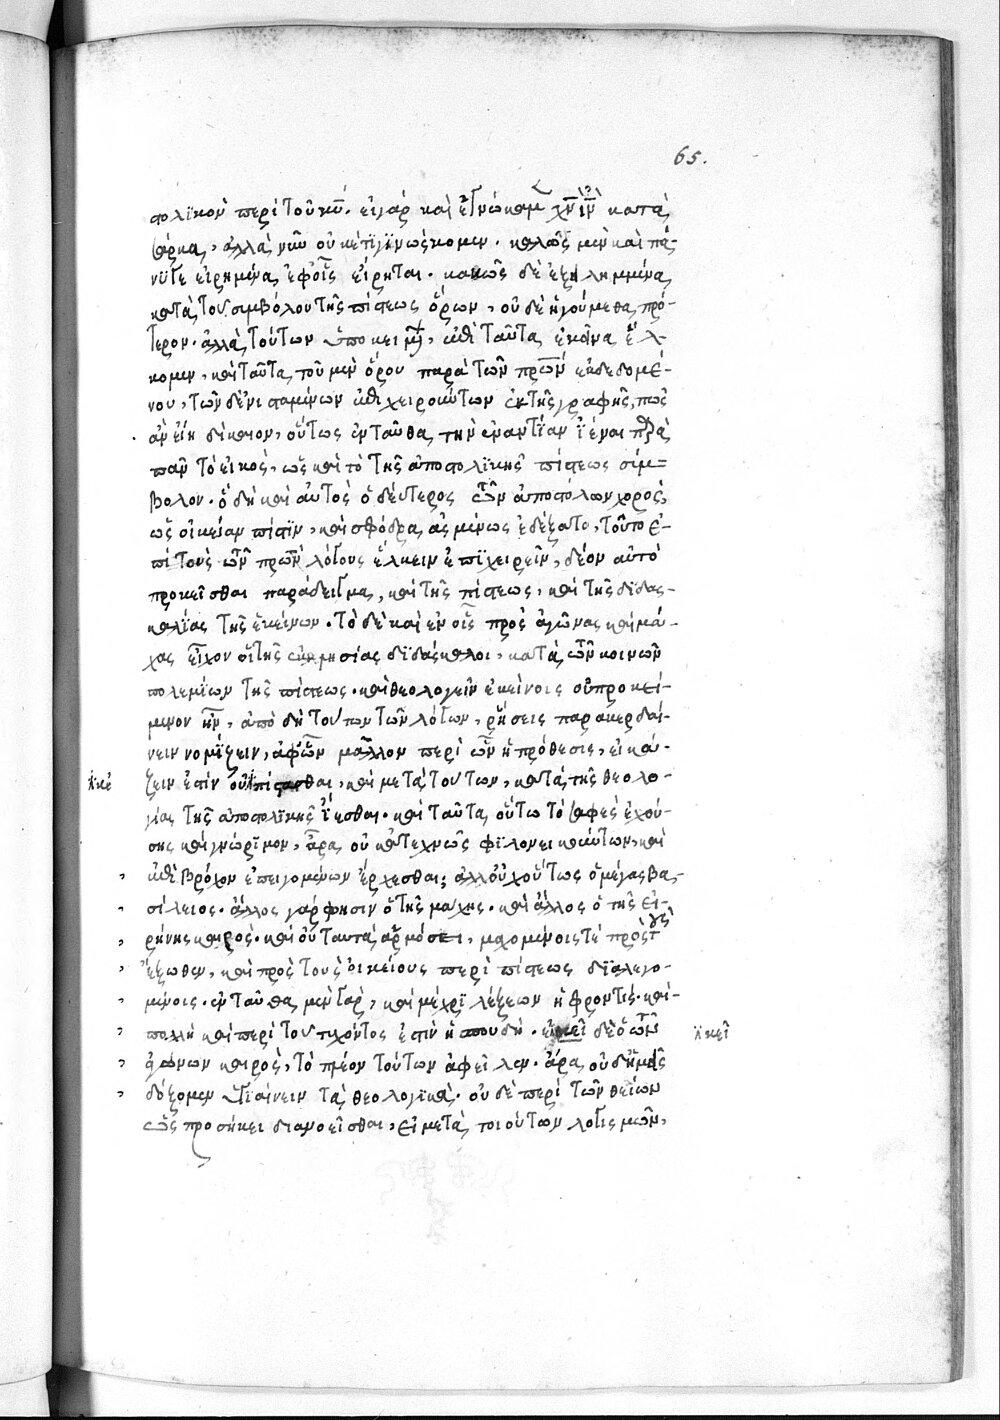 65.
στολϊκὸν περὶ τοῦ κυ̅. εἰ γὰρ καὶ ἐγνώκαμεν χν̅ ιν̅ κατὰ
σάρκα, ἀλλὰ νῦν οὐκέτι γϊνώσκομεν. καλῶς μὲν καὶ πά-
νυ γε εἰρημένα, ἐφ' οἷς εἴρηται. κακῶς δὲ ἐξειλημμένα,
κατὰ τοῦ συμβόλου τῆς πίστεως ὅρων, οὐδὲ ἡγούμεθα πρό-
τερον. ἀλλὰ τούτων ὑποκειμένων, ἐπὶ ταῦτα ἐκεῖνα ἕλ-
κομεν, καὶ ταῦτα, τοῦ μὲν ὅρου παρὰ τῶν πρ̅ων ἐκδεδομέ-
νου, τῶν δὲ ἐνισταμένων ἐπιχειρούντων ἐκ τῆς γραφῆς, πῶς
ἂν εἴη δίκαιον, οὕτως ἐνταῦθα τὴν ἐναντίαν ἰέναι παρὰ
πᾶν τὸ εἰκὸς, ὡς καὶ τὸ τῆς ἀποστολϊκῆς πίστεως σύμ-
βολον. ὃ δὴ καὶ αὐτὸς ὁ δεύτερος τῶν ἀποστόλων χορὸς,
ὡς οἰκείαν πίστϊν, καὶ σφόδρα ἀσμένως ἐδέξατο, τοῦτο ἐ-
πὶ τοὺς τῶν πρ̅ων λόγους ἕλκειν ἐπϊχειρεῖν, δέον αὐτὸ
προκεῖσθαι παράδειγμα, καὶ τῆς πίστεως, καὶ τῆς δϊδασ-
καλίας τῆς ἐκείνων. τὸ δὲ καὶ ἐν οἷς πρὸς ἀγῶνας καὶ μά-
χας εἶχον οἱ τῆς ἐκκλησίας δϊδάσκαλοι, κατὰ τῶν κοινῶν
πολεμίων τῆς πίστεως. καὶ θεολογεῖν ἐκείνοις οὐ προκεί-
μενον ἦν, ἀπὸ δὴ τούτων τῶν λόγων, ῥήσεις παρακερδαί-
νειν νομίζειν, ἀφ' ὧν μᾶλλον περὶ ὧν ἡ πρόθεσις, εἰκά-
ζειν ἐστὶν οὐκ ἐπίστασθαι, καὶ μετὰ τούτων, κατὰ τῆς θεολο-
γίας τῆς ἀποστολϊκῆς ἵεσθαι. καὶ ταῦτα οὕτω τὸ σαφὲς ἐχού-
σης καὶ γνώρϊμον, ἆρα οὐκ ἀτεχνῶς φϊλονεικούντων, καὶ
ἐπὶ βρόχον ἐπειγομένων ἔρχεσθαι; ἀλλ' οὐχ οὕτως ὁ μέγας Βα-
σίλειος. ἄλλος γάρ φησιν ὁ τῆς μάχης. καὶ ἄλλος ὁ τῆς εἰ-
ρήνης καιρός. καὶ οὐ ταυτὰ ἁρμόσει, μαχομένοις τε πρὸς τοὺς
ἔξωθεν, καὶ πρὸς τοὺς οἰκείους περὶ πίστεως δϊαλεγο-
μένοις. ἐνταῦθα μὲν γὰρ, καὶ μέχρϊ λέξεων ἡ φροντίς. καὶ
πολλὴ καὶ περὶ τοῦ τυχόντος ἐστὶν ἡ σπουδή. ἐκεῖ δὲ ὁ τῶν ἐκεῖ
ἀγώνων καιρὸς, τὸ πλέον τούτων ἀφεῖλεν. ἆρα οὐδ' ἡμεῖς
δόξομεν ὑγϊαίνειν τὰ θεολογϊκά. οὐδὲ περὶ τῶν θείων
ὡς προσήκει διανοεῖσθαι, εἰ μετὰ τοιούτων λογισμῶν,